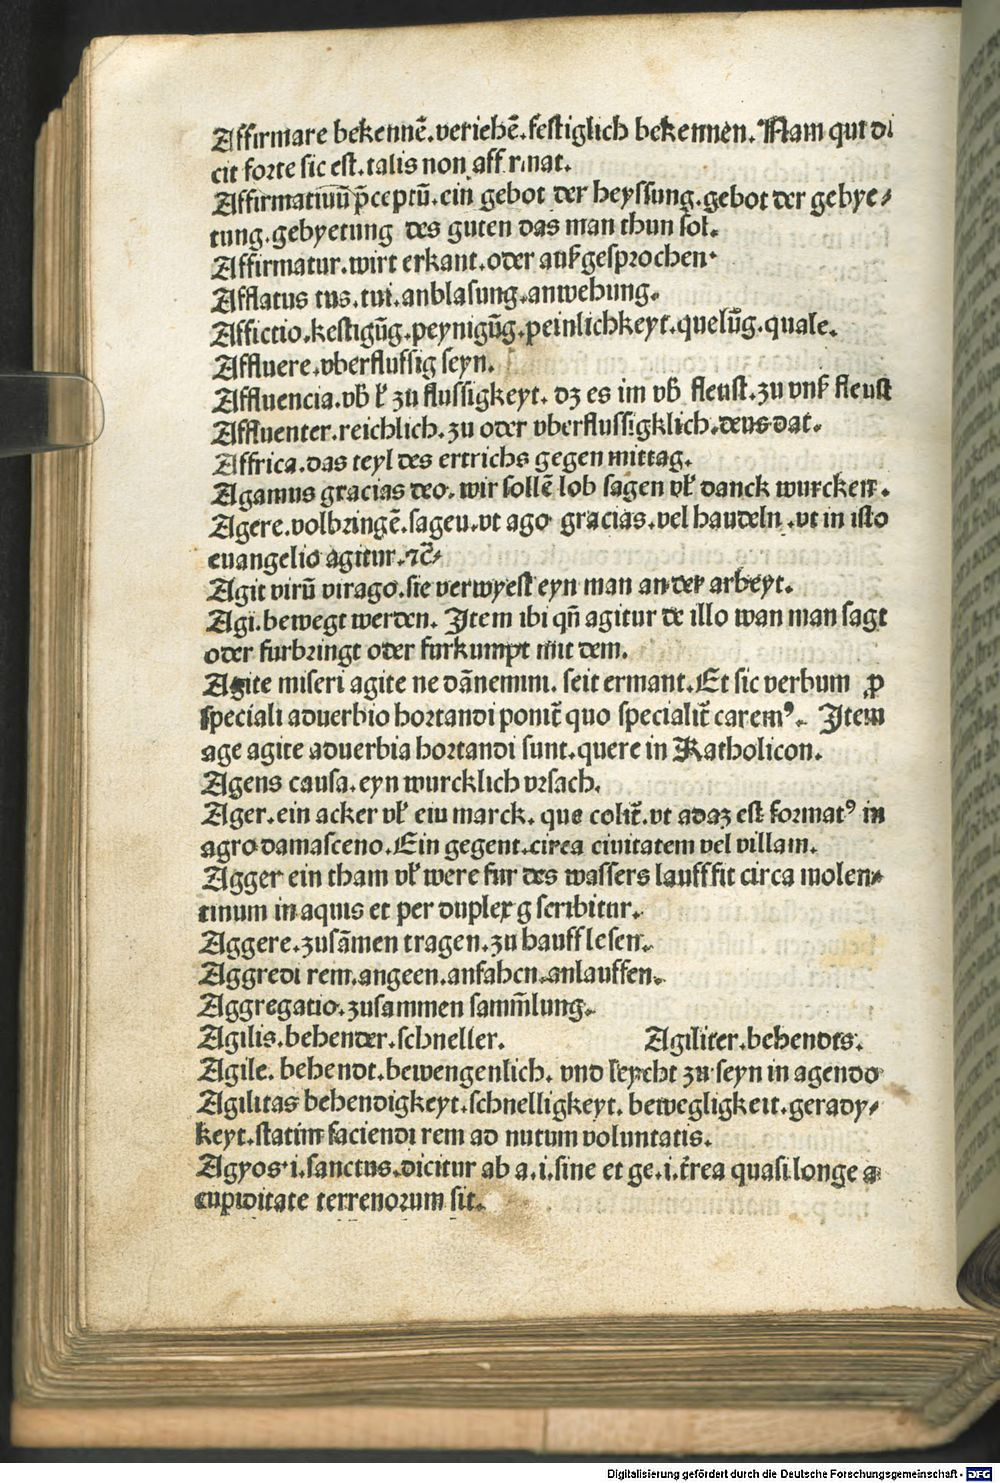 Affirmare bekennē.veriehē.festiglich bekennen. Nam qui di
cit forte sic est.talis non affirmat.
Affirmatiuū p̄ceptū.ein gebot der heyssung.gebot der gebye⸗
tung.gebyetung des guten das man thun sol.
Affirmatur.wirt erkant.oder auſzgesprochen.
Afflatus tus.tui.anblasung.anwehung.
Affictio.kestigūg.peynigūg.peinlichkeyt.quelūg.quale.
Affluere.vberflussig seyn.
Affluencia.vb̄ zu flussigkeyt. dz es im vb̄ fleust.zu fleust
Affluenter.reichlich.zu oder vberflussigklich.deus dat.
Affrica.das teyl des ertrichs gegen mittag.
Agamus gracias deo.wir sollē lob sagen vn̄ danck wurcken.
Agere.volbringē.sagen.vt ago gracias.vel handeln.vt in isto
euangelio agitur.⁊c̄⸗
Agit virū virago.sie verwyest eyn man an der arbeyt.
Agi.bewegt werden. Item ibi qn̄ agitur de illo wan man sagt
oder furbringt oder furkumpt mit dem.
Agite miseri agite ne dānemini. seit ermant.Et sic verbum ꝓ
speciali aduerbio hortandi ponit̄ quo specialit̄ caremꝰ. Item
age agite aduerbia hortandi sunt.quere in Katholicon.
Agens causa.eyn wurcklich vrsach.
Ager.ein acker vn̄ ein marck. que colit̄.vt adaz est formatꝰ in
agro damasceno.Ein gegent.circa ciuitatem vel villam.
Agger ein tham vn̄ were fur des wassers laufffit circa molen⸗
tinum in aquis et per duplex g scribitur.
Aggere.zusāmen tragen.zu hauff lesen.
Aggredi rem.angeen.anfahen.anlauffen.
Aggregatio.zusammen sam̄lung.
Agilis.behender.schneller. Agiliter.behendts.
Agile. behendt.bewengenlich. vnd leycht zu seyn in agendo
Agilitas behendigkeyt.schnelligkeyt. bewegligkeit.gerady⸗
keyt.statim faciendi rem ad nutum voluntatis.
Agyos.i.sanctus.dicitur ab a.i.sine et ge.i.t̄rea quasi longe a
cupiditate terrenorum sit.
Digitalisierung gefördert durch die Deutsche Forschungsgemeinschaft - DFG